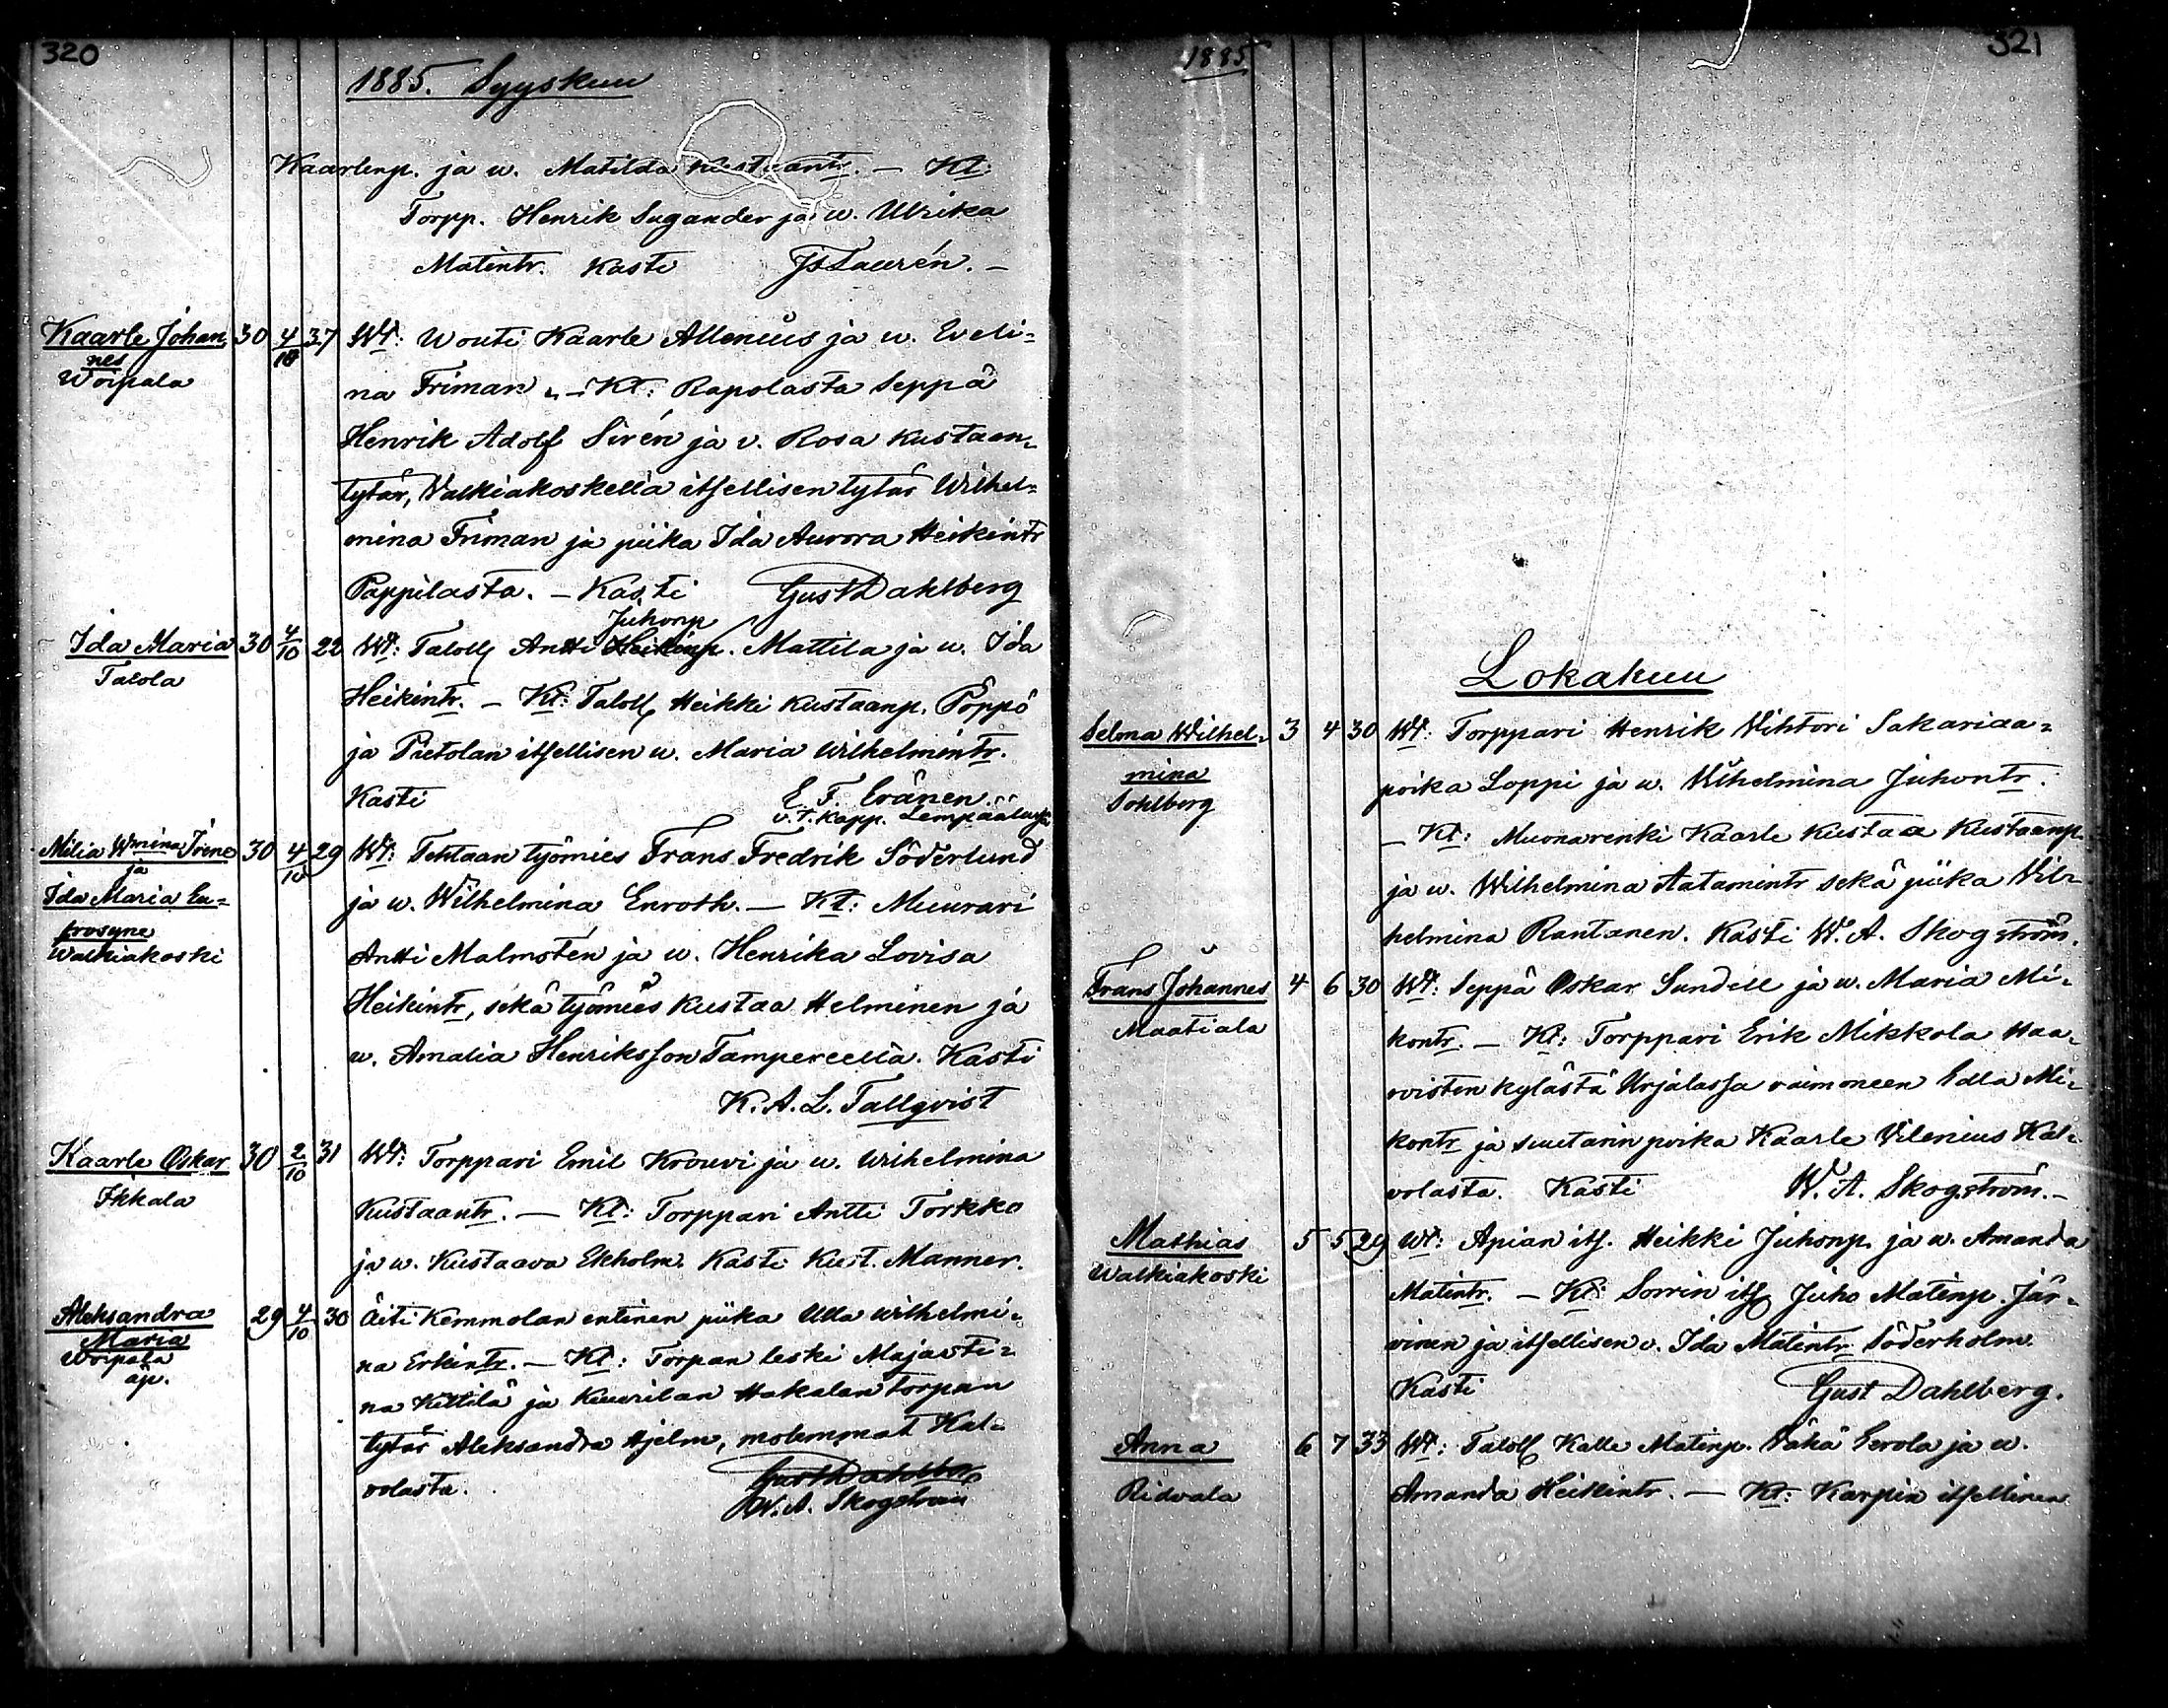 320
1885. Syyskuu
Kaarlenp. ja w. Matilda Kustaantr. — Kt:
Torpp. Henrik Sugander ja w. Ulrika
Matintr. Kasti Js Laurén. —
Kaarle Johan 30 4/10 37 Wt: Wouti Kaarle Allenius ja w. Eveli=
nes
Woipala
na Friman. — Kt: Rapolasta Seppä
Henrik Adolf Sirén ja v. Rosa Kustaan=
tytär, Valkiakoskella itsellisen tytär Wilhel=
mina Friman ja piika Ida Aurora Heikintr
Pappilasta. — Kasti Gust Dahlberg
Juhonp
Ida Maria 30 4/10 22 Wt: Taloll Antti Heikinp. Mattila ja w. Ida
Talola
Heikintr. — Kt: Taloll Heikki Kustaanp. Poppo
ja Pietolan itsellisen w. Maria Wilhelmintr.
Kasti E. F. Eränen.
v.t. kapp. Lempäälässä
Milia Wmina Irene 30 4/10 29 Wt: Tehtaan työmies Frans Fredrik Söderlund
ja
Ida Maria Eu=
ja w. Wilhelmina Enroth. — Kt: Muurari
frosyne
Walkiakoski
Antti Malmstén ja w. Henrika Lovisa
Heikintr, sekä työmies Kustaa Helminen ja
w. Amalia Henriksson Tampereella. Kasti
K. A. L. Tallqvist
Kaarle Oskar 30 2/10 31 Wt: Torppari Emil Krouvi ja w. Wilhelmina
Ikkala
Kustaantr. — Kt: Torppari Antti Torkko
ja w. Kustaava Ekholm. Kasti Kust. Manner.
Aleksandra 29 4/10 30 Äiti Kemmolan entinen piika Ulla Wilhelmi=
Maria
Woipala
äp.
na Erkintr. — Kt: Torpan leski Majasti=
na Kittilä ja Kuurilan Hakalan torpan
tytär Aleksandra Hjelm, molemmat Kal=
volasta. Gust Dahlberg
W. A. Skogström
1885
321
Lokakuu
Selma Wilhel= 3 4 30 Wt: Torppari Henrik Vihtori Sakariaa=
mina
Sohlberg
poika Loppi ja w. Wilhelmina Juhontr.
— Kt: Muonarenki Kaarle Kustaa Kustaanp
ja w. Wilhelmina Aatamintr sekä piika Vil=
helmina Rantanen. Kasti W. A. Skogström.
Frans Johannes 4 6 30 Wt: Seppä Oskar Sundell ja w. Maria Mi=
Maatiala
kontr. — Kt: Torppari Erik Mikkola Haa=
visten kylästä Urjalassa vaimoneen Edla Mi=
kontr ja suutarin poika Kaarle Vilenius Kal=
volasta. Kasti W. A. Skogström. —
Mathias 5 5 29 Wt: Apian its. Heikki Juhonp. ja w. Amanda
Walkiakoski
Matintr. — Kt: Sorrin its Juho Matinp. Jär=
vinen ja itsellisen v. Ida Matintr Söderholm.
Kasti Gust Dahlberg.
Anna 6 7 33 Wt: Taloll Kalle Matinp. Vähä Eerola ja w.
Ridvala
Amanda Heikintr. — Kt: Karpin itsellinen